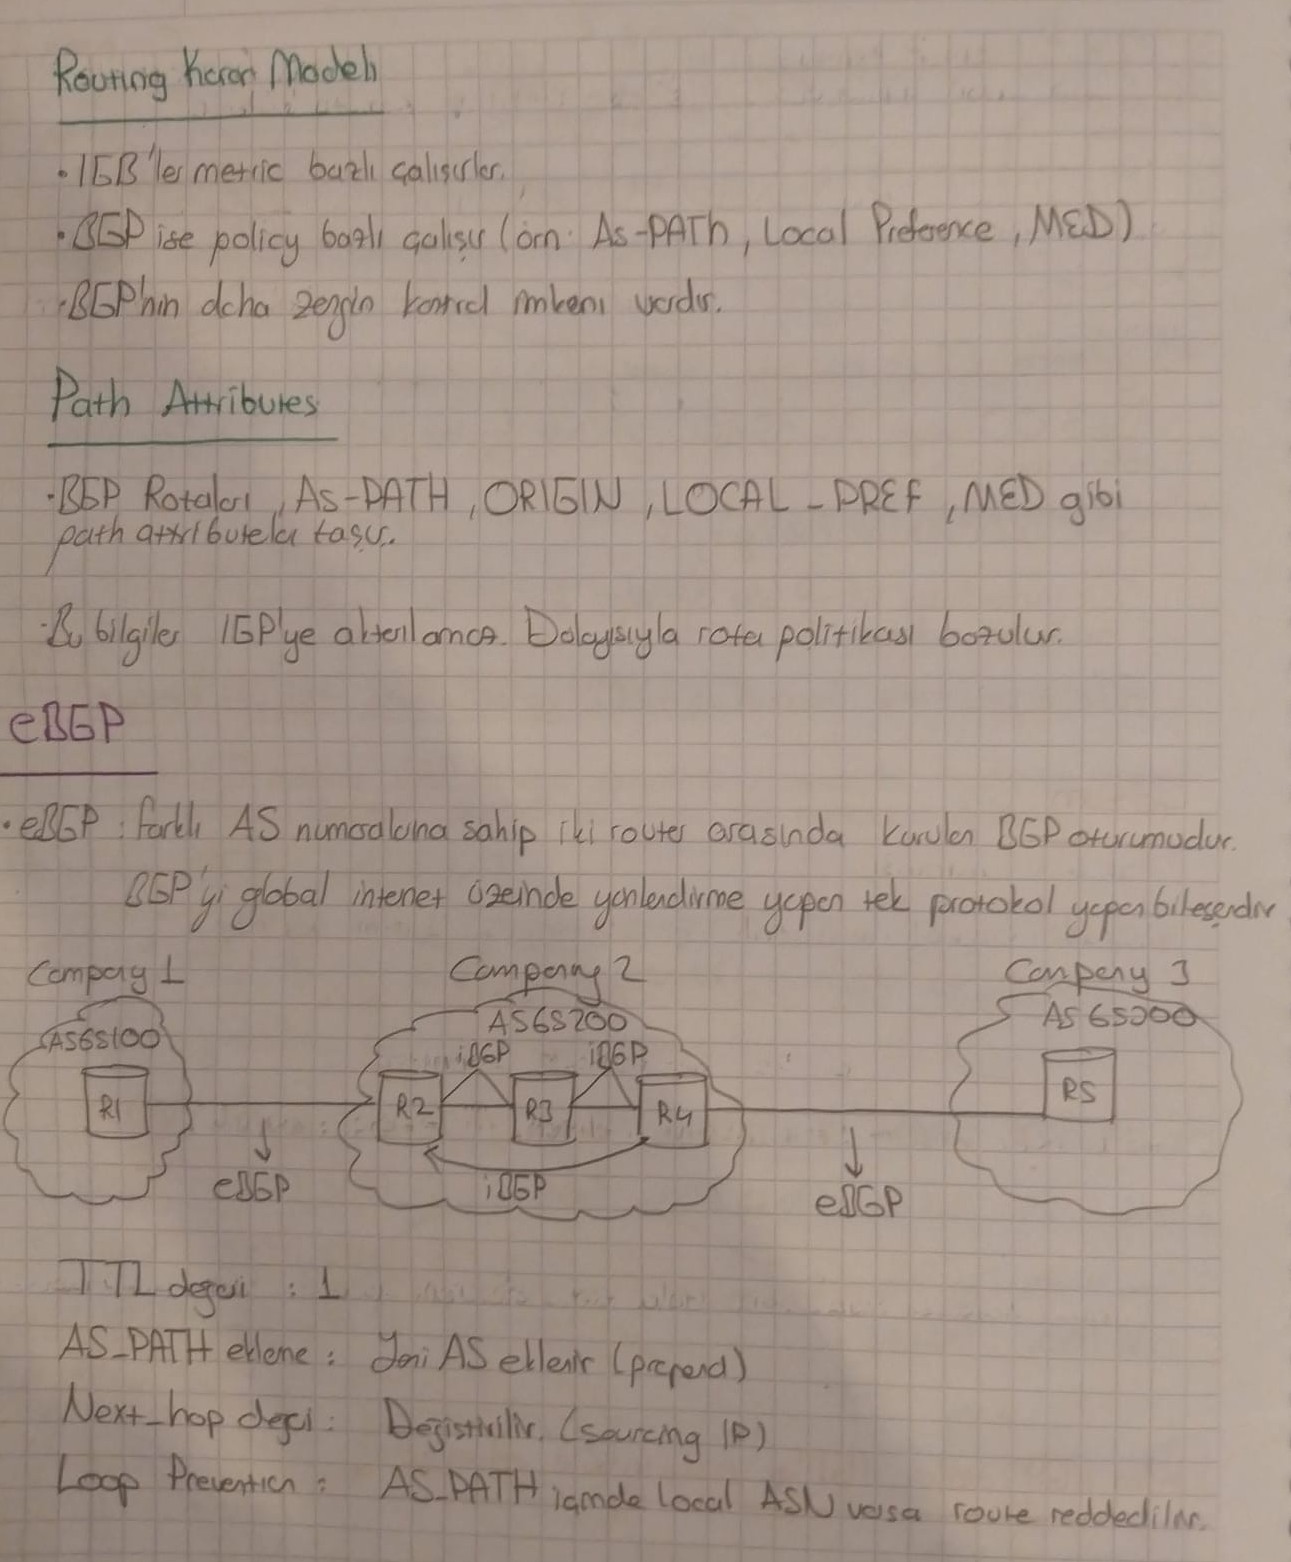 Routing Karar Modeli
• IGB'ler metric bazlı çalışırlar.
• BGP ise policy bazlı çalışır (örn: As-PATh, Local Preference, MED)
• BGP'nin daha zengin kontrol imkanı vardır.
Path Attributes
• BGP Rotaları, As-PATH, ORIGIN, LOCAL_PREF, MED gibi
path attributeları taşır.
• Bu bilgiler IGP'ye aktarılamaz. Dolayısıyla rota politikası bozulur.
eBGP
• eBGP: farklı AS numaralarına sahip iki router arasında kurulan BGP oturumudur.
BGP'yi global intenet üzeinde yönlendirme yapan tek protokol yapan bileşendir
Company 1 Company 2 Company 3
AS65100 AS65200 AS65300
iBGP iBGP
R1 R2 R3 R4 R5
eBGP iBGP eBGP
TTL değeri : 1
AS_PATH ekleme : Yeni AS eklenir (prepend)
Next_hop değeri : Değiştirilir. (sourcing IP)
Loop Prevention : AS_PATH içinde local ASN varsa route reddedilir.